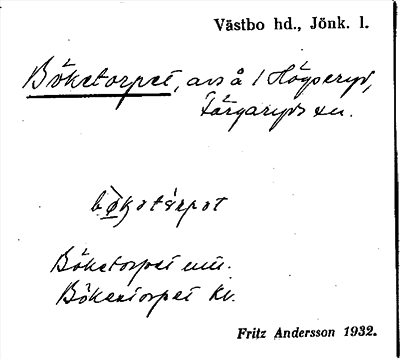 Västbo hd., Jönk. l.
Böketorpet, avs å 1 Högseryd,
Färgaryds sn.
Böketorpet
Böketorpet kv.
Fritz Andersson 1932.